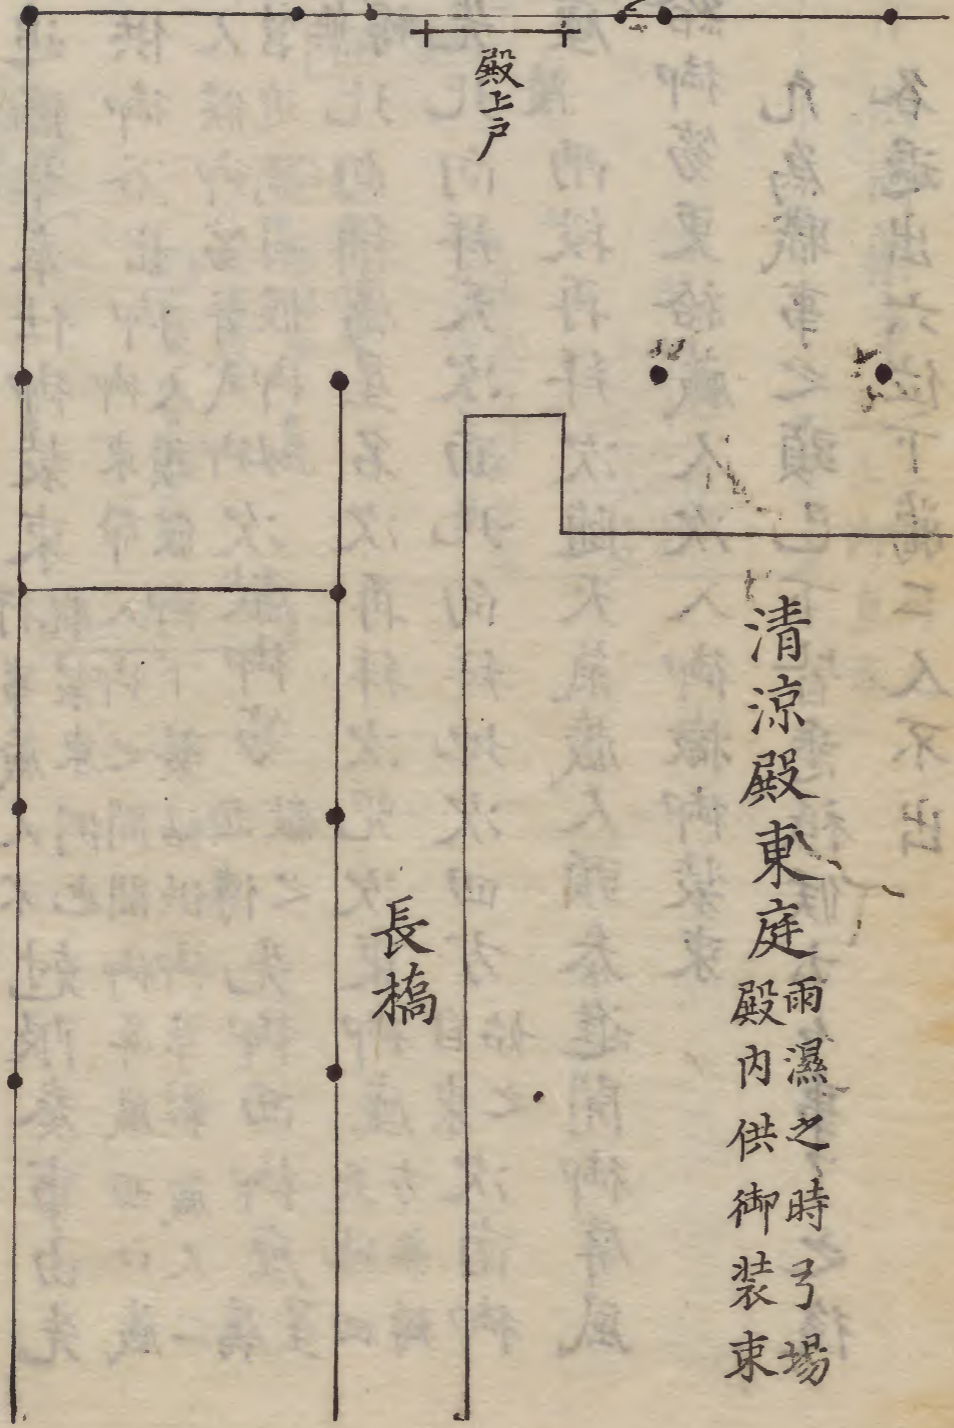 殿上戸
清涼殿東庭
雨濕之時弓場
殿内供御装束
長橋